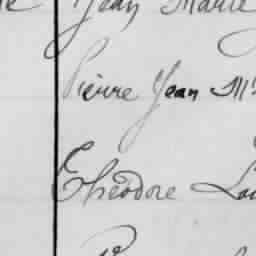 Jean Marie
Pierre Jean M
Théodore